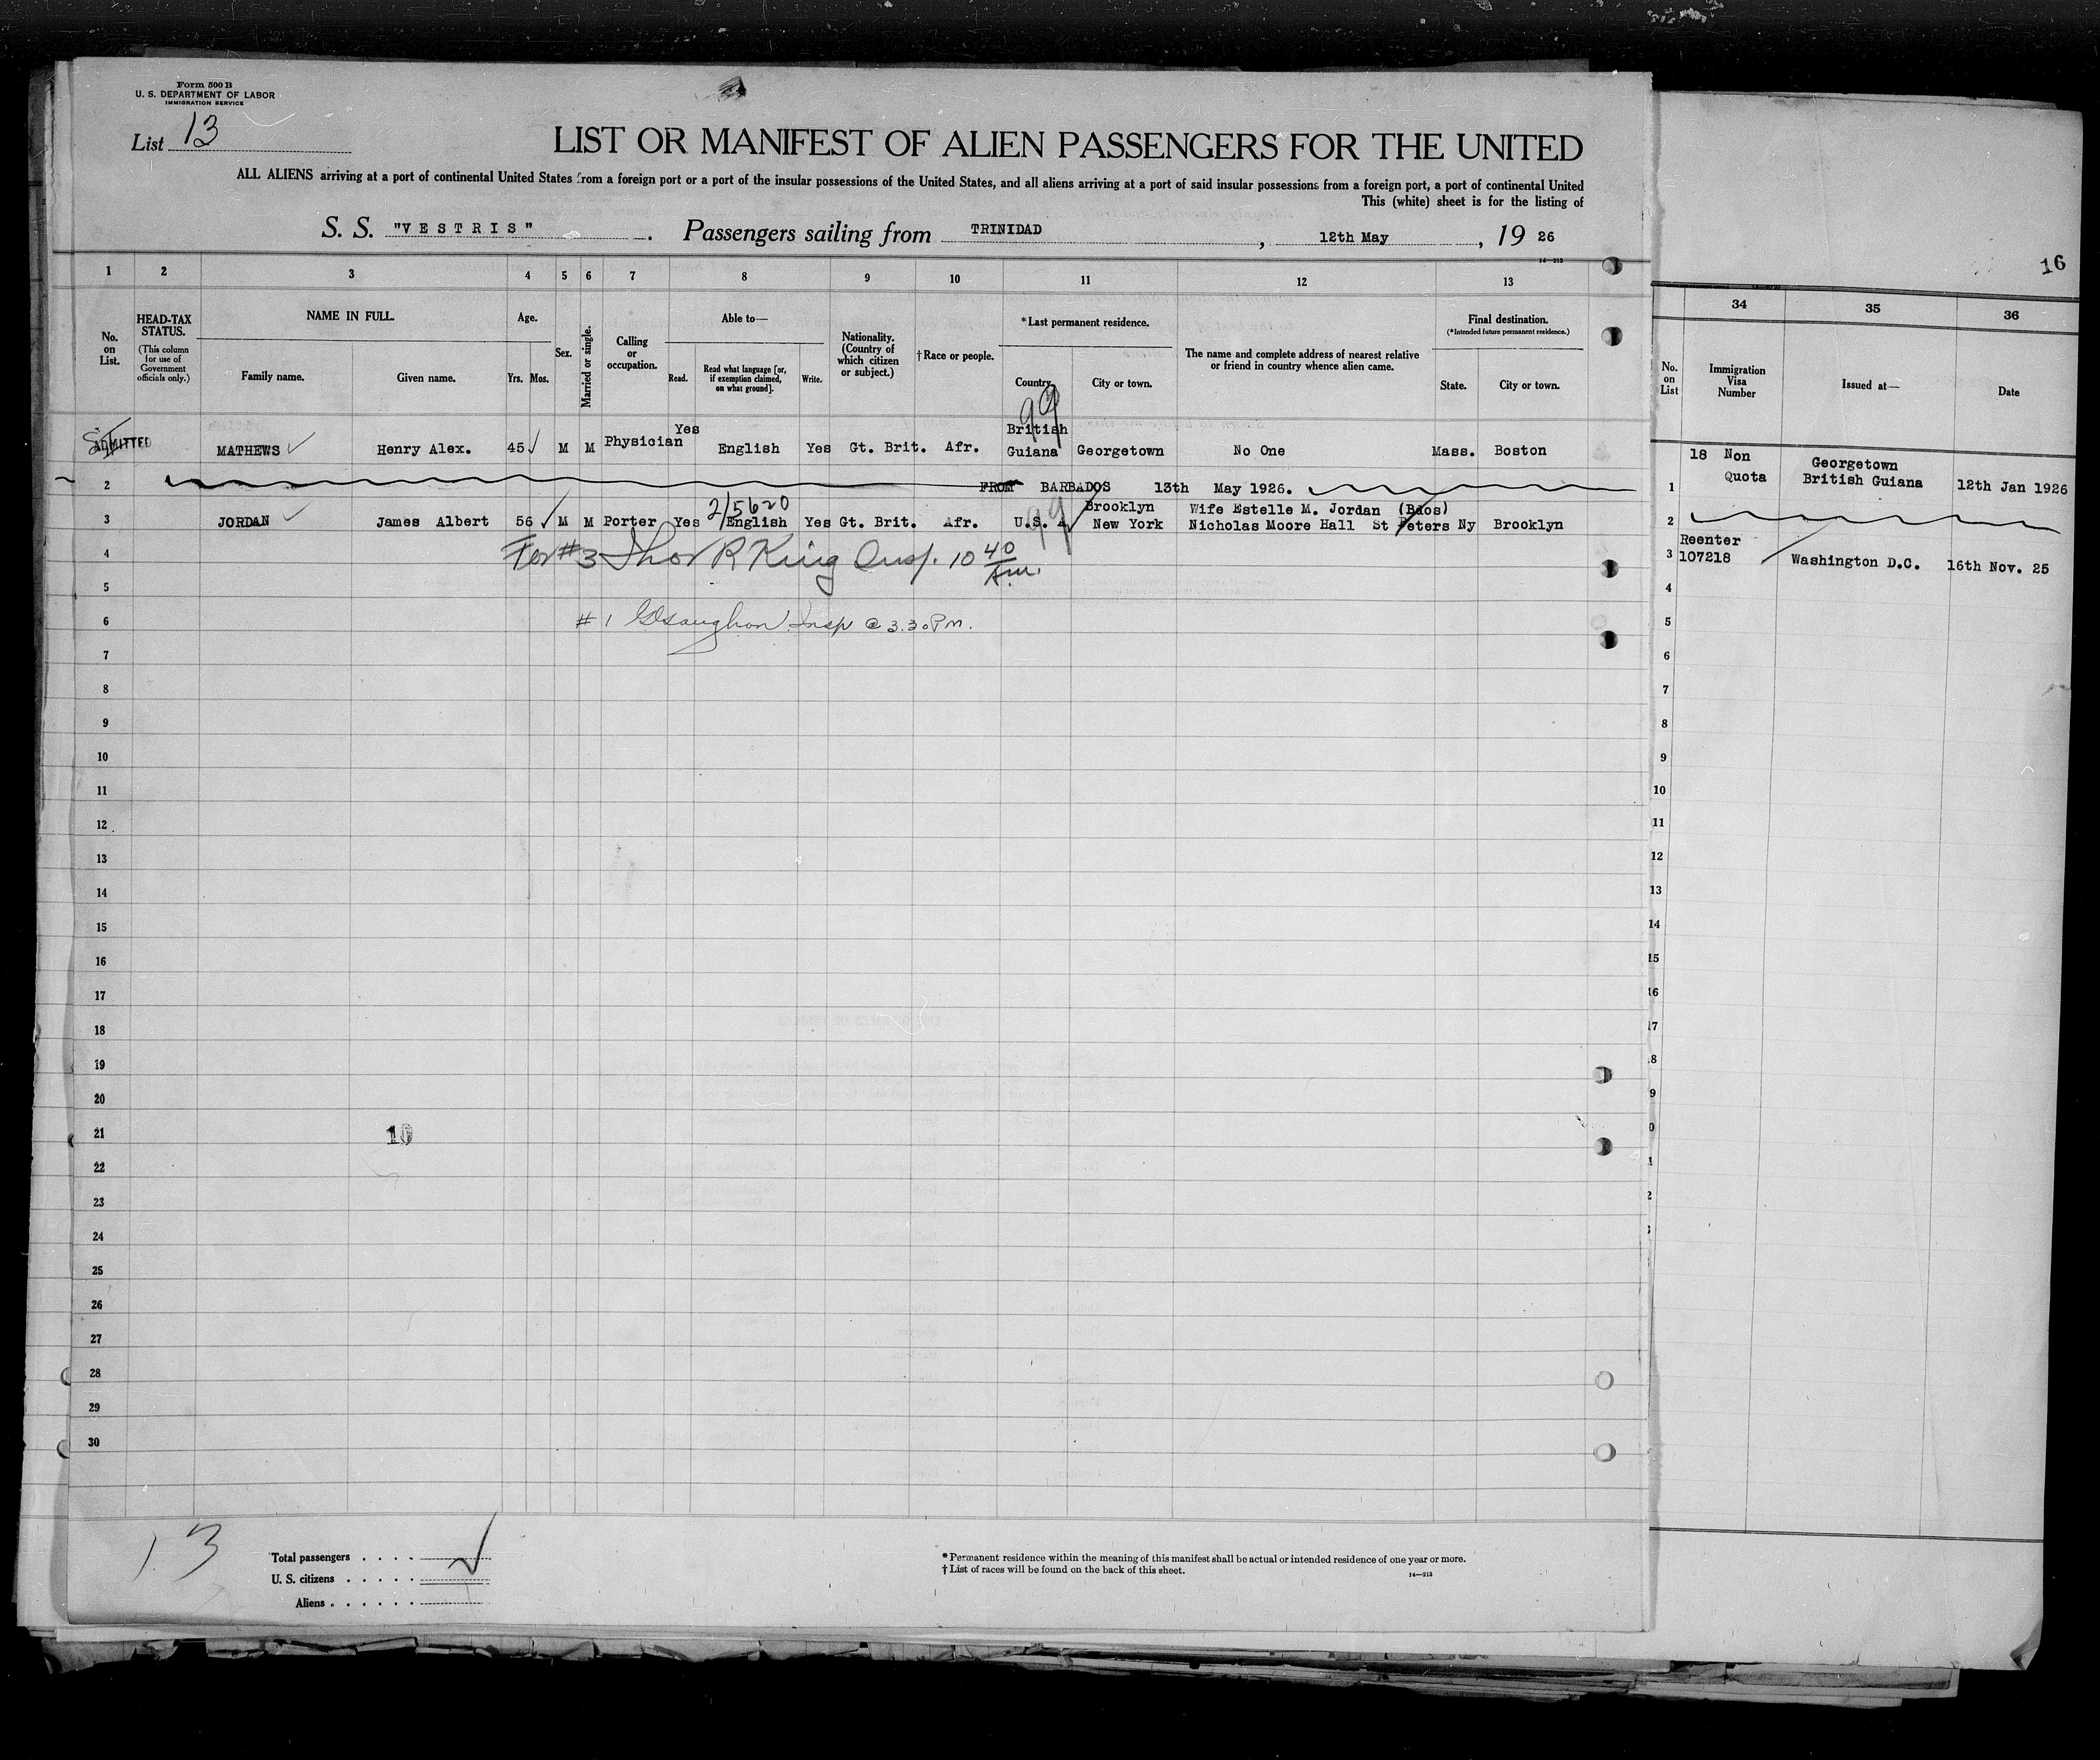 Form 500 B
U. S. DEPARTMENT OF LABOR
IMMIGRATION SERVICE
List 13
LIST OR MANIFEST OF ALIEN PASSENGERS FOR THE UNITED
ALL ALIENS arriving at a port of continental United States from a foreign port or a port of the insular possessions of the United States, and all aliens arriving at a port of said insular possessions from a foreign port, a port of continental United
This (white) sheet is for the listing of
S. S. "VESTRIS". Passengers sailing from TRINIDAD, 12th May, 19 26
14—213
16
1 2 3 4 5 6 7 8 9 10 11 12 13
34 35 36
No. on List.
HEAD-TAX STATUS.
(This column for use of Government officials only.)
NAME IN FULL.
Family name. Given name.
Age.
Yrs. Mos.
Sex.
Married or single.
Calling or occupation.
Able to—
Read. Read what language [or, if exemption claimed, on what ground]. Write.
Nationality. (Country of which citizen or subject.)
†Race or people.
*Last permanent residence.
Country. City or town.
The name and complete address of nearest relative or friend in country whence alien came.
Final destination.
(*Intended future permanent residence.)
State. City or town.
No. on List
Immigration Visa Number
Issued at—
Date
99
ADMITTED MATHEWS Henry Alex. 45 M M Physician Yes English Yes Gt. Brit. Afr. British Guiana Georgetown No One Mass. Boston
1 18 Non Quota Georgetown British Guiana 12th Jan 1926
2 FROM BARBADOS 13th May 1926.
2
2/5620
99
3 JORDAN James Albert 56 M M Porter Yes English Yes Gt. Brit. Afr. U.S. A Brooklyn New York Wife Estelle M. Jordan (Bdos) Nicholas Moore Hall St Peters Ny Brooklyn
3 Reenter 107218 Washington D.C. 16th Nov. 25
For #3 Thos R King Insp. 10 40 A.m.
4
5
6 #1 Insp @ 3.30 P m.
7
8
9
10
11
12
13
14
15
16
17
18
19
20
21 16
22
23
24
25
26
27
28
29
30
4
5
6
7
8
9
10
11
12
13
14
15
16
17
8
9
0
1
2
13
Total passengers . . . .
U. S. citizens . . . . .
Aliens . . . . . .
*Permanent residence within the meaning of this manifest shall be actual or intended residence of one year or more.
†List of races will be found on the back of this sheet.
14—213